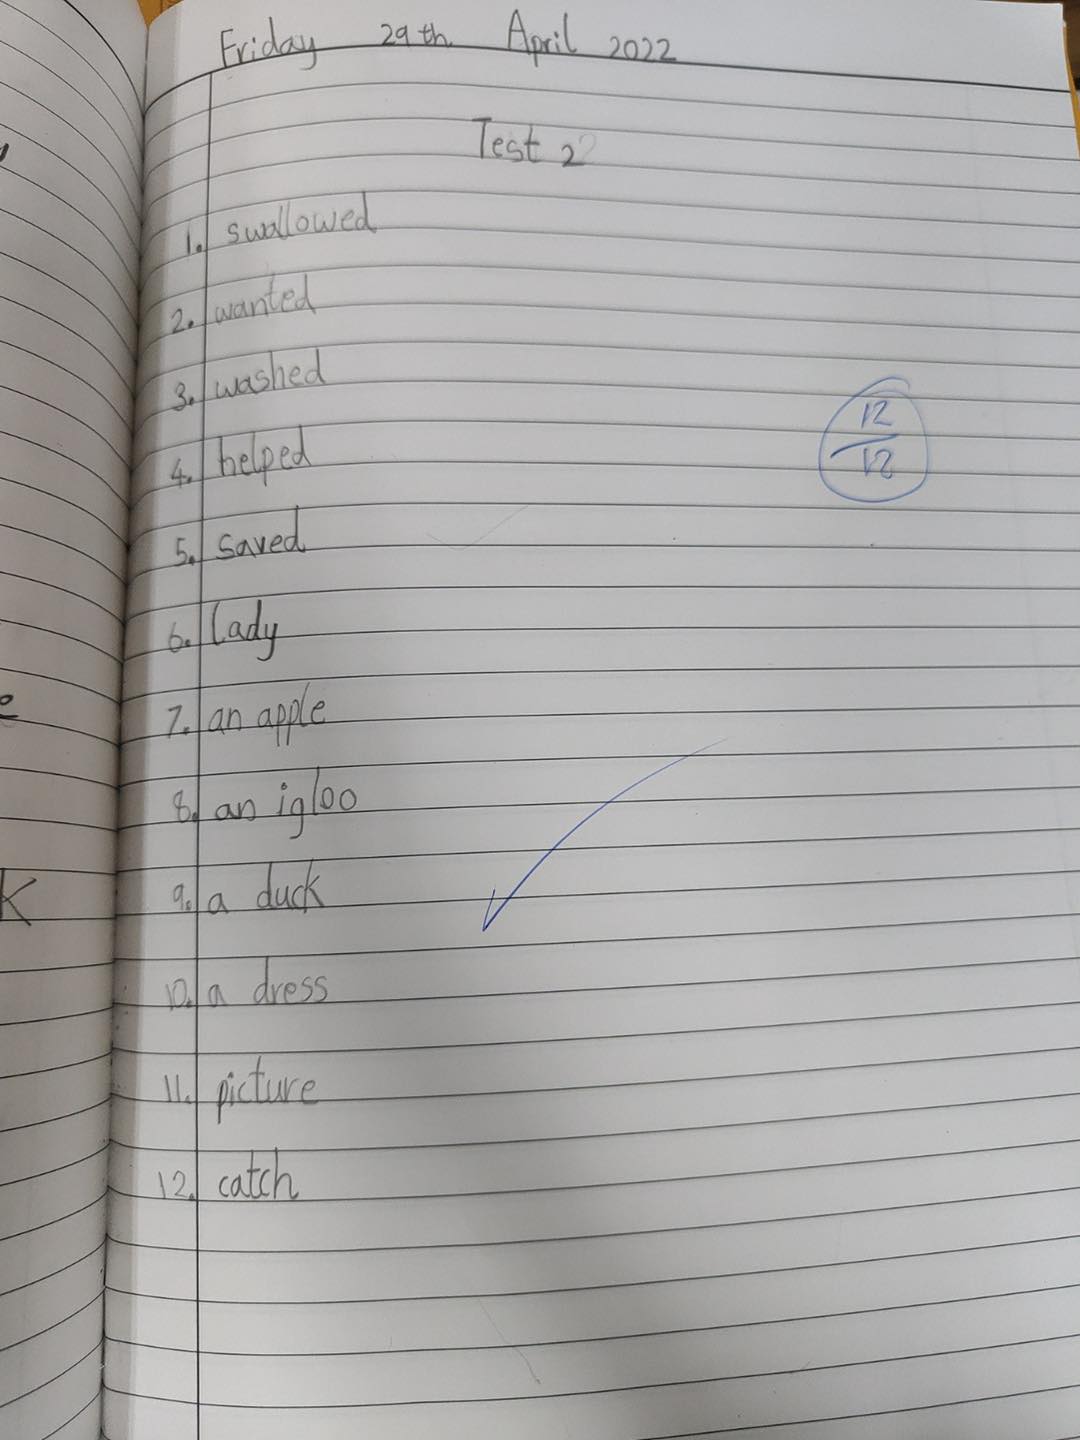 Friday 29th April 2022
Test 22
1. swallowed
2. wanted
3. washed
12
12
4. helped
5. saved
6. lady
7. an apple
8. an igloo
9. a duck
10. a dress
11. picture
12. catch
K